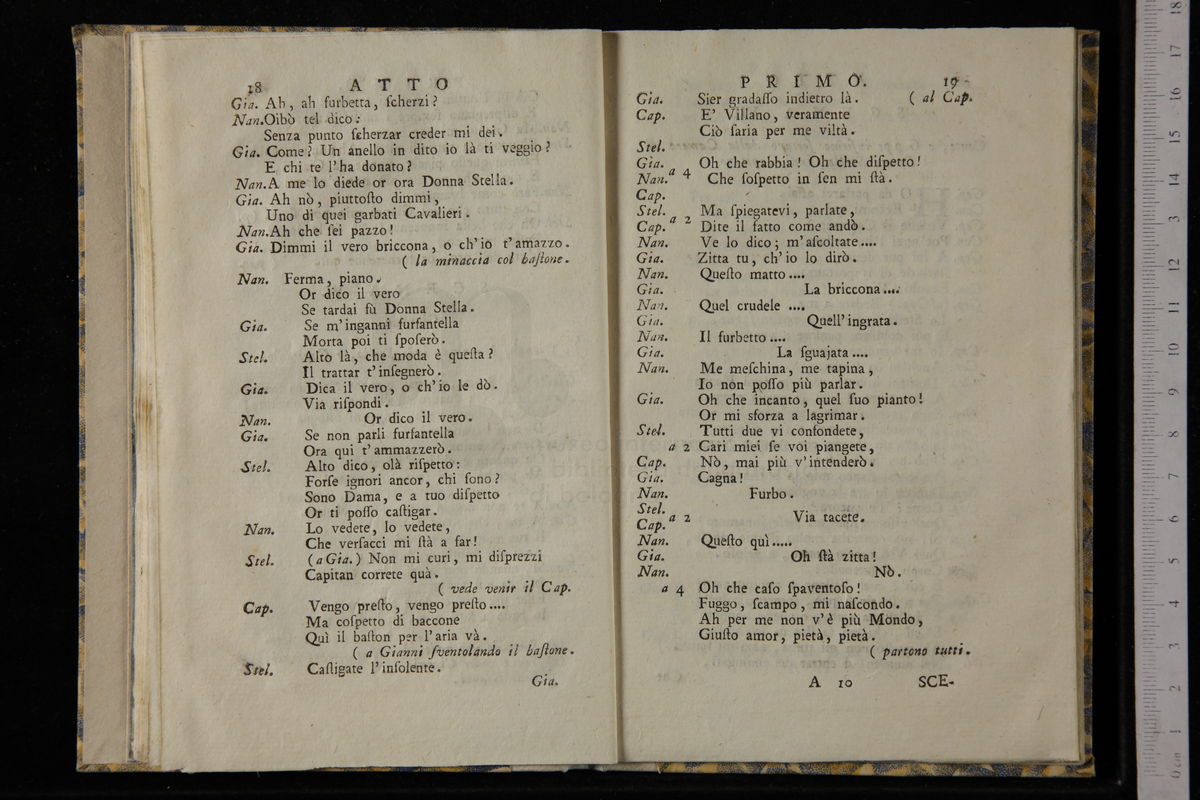 18 ATTO
Gia. Ah, ah furbetta, ſcherzi?
Nan.Oibò tel dico:
Senza punto ſcherzar creder mi dei.
Gia. Come? Un anello in dito io là ti veggio?
E chi te l'ha donato?
Nan.A me lo diede or ora Donna Stella.
Gia. Ah nò, piuttoſto dimmi,
Uno di quei garbati Cavalieri.
Nan.Ah che ſei pazzo!
Gia. Dimmi il vero briccona, o ch'io t'amazzo.
( la minaccia col baſtone.
Nan. Ferma, piano.
Or dico il vero
Se tardai fù Donna Stella.
Gia. Se m'inganni furfantella
Morta poi ti ſpoſerò.
Stel. Alto là, che moda è queſta?
Il trattar t'inſegnerò.
Gia. Dica il vero, o ch'io le dò.
Via riſpondi.
Nan. Or dico il vero.
Gia. Se non parli furfantella
Ora qui t'ammazzerò.
Stel. Alto dico, olà riſpetto:
Forſe ignori ancor, chi ſono?
Sono Dama, e a tuo diſpetto
Or ti poſſo caſtigar.
Nan. Lo vedete, lo vedete,
Che verſacci mi ſtà a far!
Stel. (a Gia.) Non mi curi, mi diſprezzi
Capitan correte quà.
( vede venir il Cap.
Cap. Vengo preſto, vengo preſto....
Ma coſpetto di baccone
Quì il baſton per l'aria và.
( a Gianni ſventolando il baſtone.
Stel. Caſtigate l'inſolente.
Gia.
PRIMO. 19
Gia. Sier gradaſſo indietro là. ( al Cap.
Cap. E' Villano, veramente
Ciò ſaria per me viltà.
Stel.
Gia. Oh che rabbia! Oh che diſpetto!
Nan. a 4 Che ſoſpetto in ſen mi ſtà.
Cap.
Stel. Ma ſpiegatevi, parlate,
Cap. a 2 Dite il fatto come andò.
Nan. Ve lo dico; m'aſcoltate....
Gia. Zitta tu, ch'io lo dirò.
Nan. Queſto matto....
Gia. La briccona....
Nan. Quel crudele ....
Gia. Quell'ingrata.
Nan. Il furbetto....
Gia. La ſguajata....
Nan. Me meſchina, me tapina,
Io non poſſo più parlar.
Gia. Oh che incanto, quel ſuo pianto!
Or mi sforza a lagrimar.
Stel. Tutti due vi confondete,
a 2 Cari miei ſe voi piangete,
Cap. Nò, mai più v'intenderò.
Gia. Cagna!
Nan. Furbo.
Stel.
Cap. a 2 Via tacete.
Nan. Queſto quì.....
Gia. Oh ſtà zitta!
Nan. Nò.
a 4 Oh che caſo ſpaventoſo!
Fuggo, ſcampo, mi naſcondo.
Ah per me non v'è più Mondo,
Giuſto amor, pietà, pietà.
( partono tutti.
A 10 SCE-